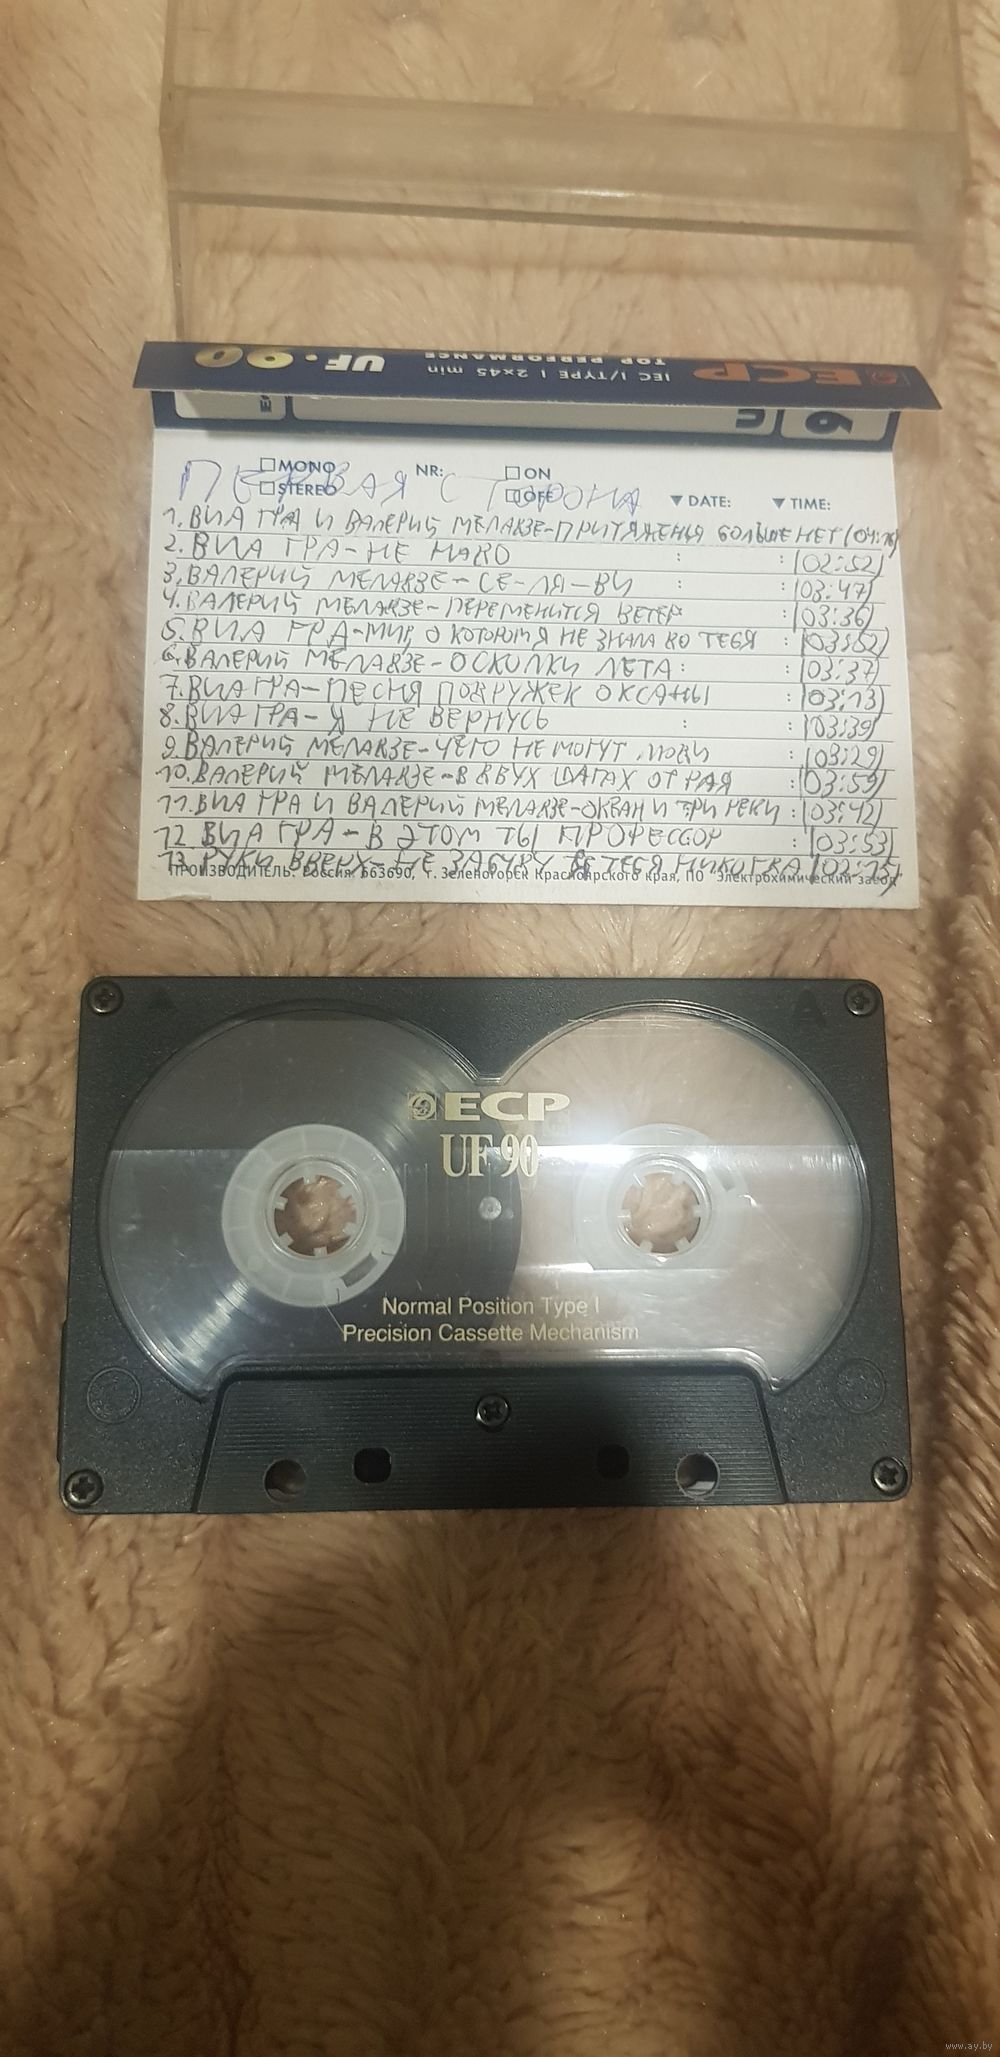 ECP
IEC I/TYPE I 2x45 min
TOP PERFORMANCE
UF.90
MONO NR: ON
STEREO OFF ▼ DATE: ▼ TIME:
ПЕРВАЯ СТОРОНА
1. ВИА ГРА И ВАЛЕРИЙ МЕЛАДЗЕ-ПРИТЯЖЕНЬЯ БОЛЬШЕ НЕТ
2. ВИА ГРА-НЕ НАДО (02:52)
3. ВАЛЕРИЙ МЕЛАДЗЕ-СЕ-ЛЯ-ВИ (03:47)
4. ВАЛЕРИЙ МЕЛАДЗЕ-ПЕРЕМЕНИТСЯ ВЕТЕР (03:36)
5. ВИА ГРА-МИР, О КОТОРОМ Я НЕ ЗНАЛА ДО ТЕБЯ (03:52)
6. ВАЛЕРИЙ МЕЛАДЗЕ-ОСКОЛКИ ЛЕТА (03:37)
7. ВИА ГРА-ПЕСНЯ ПОДРУЖЕК ОКСАНЫ (03:13)
8. ВИА ГРА-Я НЕ ВЕРНУСЬ (03:39)
9. ВАЛЕРИЙ МЕЛАДЗЕ-ЧЕГО НЕ МОГУТ ЛЮДИ (03:29)
10. ВАЛЕРИЙ МЕЛАДЗЕ-В ДВУХ ШАГАХ ОТ РАЯ (03:59)
11. ВИА ГРА И ВАЛЕРИЙ МЕЛАДЗЕ-ОКЕАН И ТРИ РЕКИ (03:42)
12. ВИА ГРА-В ЭТОМ ТЫ ПРОФЕССОР (03:53)
13. РУКИ ВВЕРХ-НЕ ЗАБУДУ ТЕБЯ НИКОГДА
ПРОИЗВОДИТЕЛЬ: Россия, 663690, г. Зеленогорск Красноярского края, ПО "Электрохимический завод"
A
ECP
UF 90
Normal Position Type I
Precision Cassette Mechanism
www.ay.by